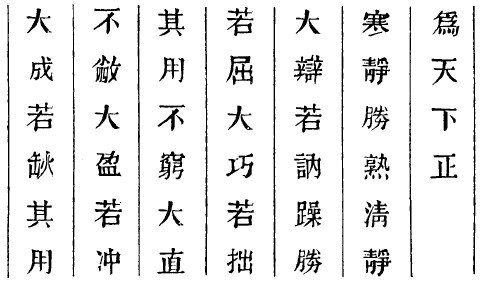 大成若缺其用
不敝大盈若冲
其用不窮大直
若屈大巧若拙
大辯若訥躁勝
寒靜勝熱清靜
爲天下正